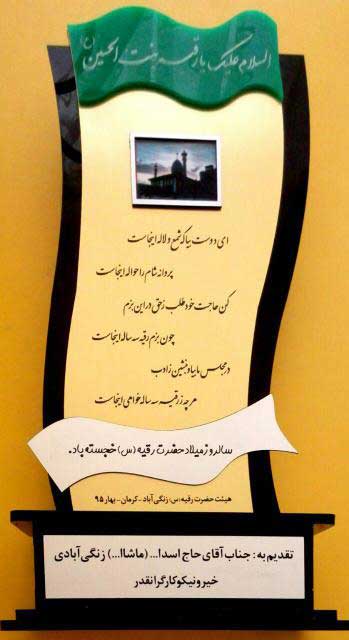 السلام علیک یا رقیه بنت الحسین (ع)
ای دوست بیا که شمع و لاله اینجاست
پروانه شام را حواله اینجاست
کن حاجت خود طلب ز حق در این بزم
چون بزم رقیه سه ساله اینجاست
در مجلس ما بیا و بنشین ز ادب
هر چه ز رقیه سه ساله خواهی اینجاست
سالروز میلاد حضرت رقیه (س) خجسته باد.
هیئت حضرت رقیه (س) زنگی آباد - کرمان - بهار ۹۵
تقدیم به: جناب آقای حاج اسدا... (ماشاا...) زنگی آبادی
خیر و نیکوکار گرانقدر